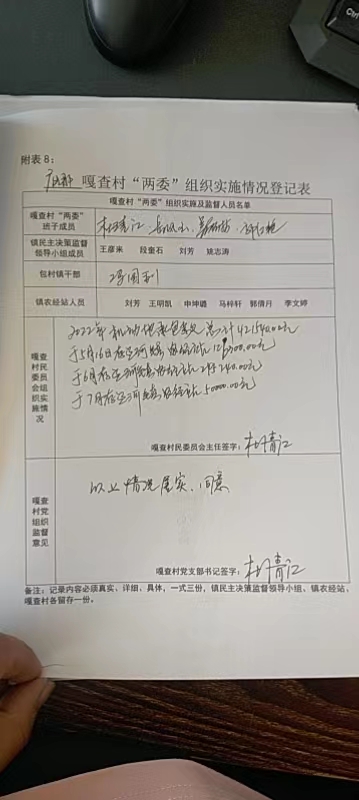 附表8:
嘎查村“两委”组织实施情况登记表
嘎查村“两委”组织实施及监督人员名单
嘎查村“两委”班子成员
镇民主决策监督领导小组成员 王彦来 段奎石 刘芳 姚志涛
包村镇干部
镇农经站人员 刘芳 王明凯 申坤璐 马梓轩 郭倩月 李文婷
嘎查村民委员会组织实施情况
2022年机动地承包费总计421540.00元
于5月16日存至河
于6月存至河
于7月存至河 50000.00元
嘎查村民委员会主任签字:杜青江
嘎查村党组织监督意见
以上情况属实、同意
嘎查村党支部书记签字:杜青江
备注:记录内容必须真实、详细、具体,一式三份,镇民主决策监督领导小组、镇农经站、
嘎查村各留存一份。